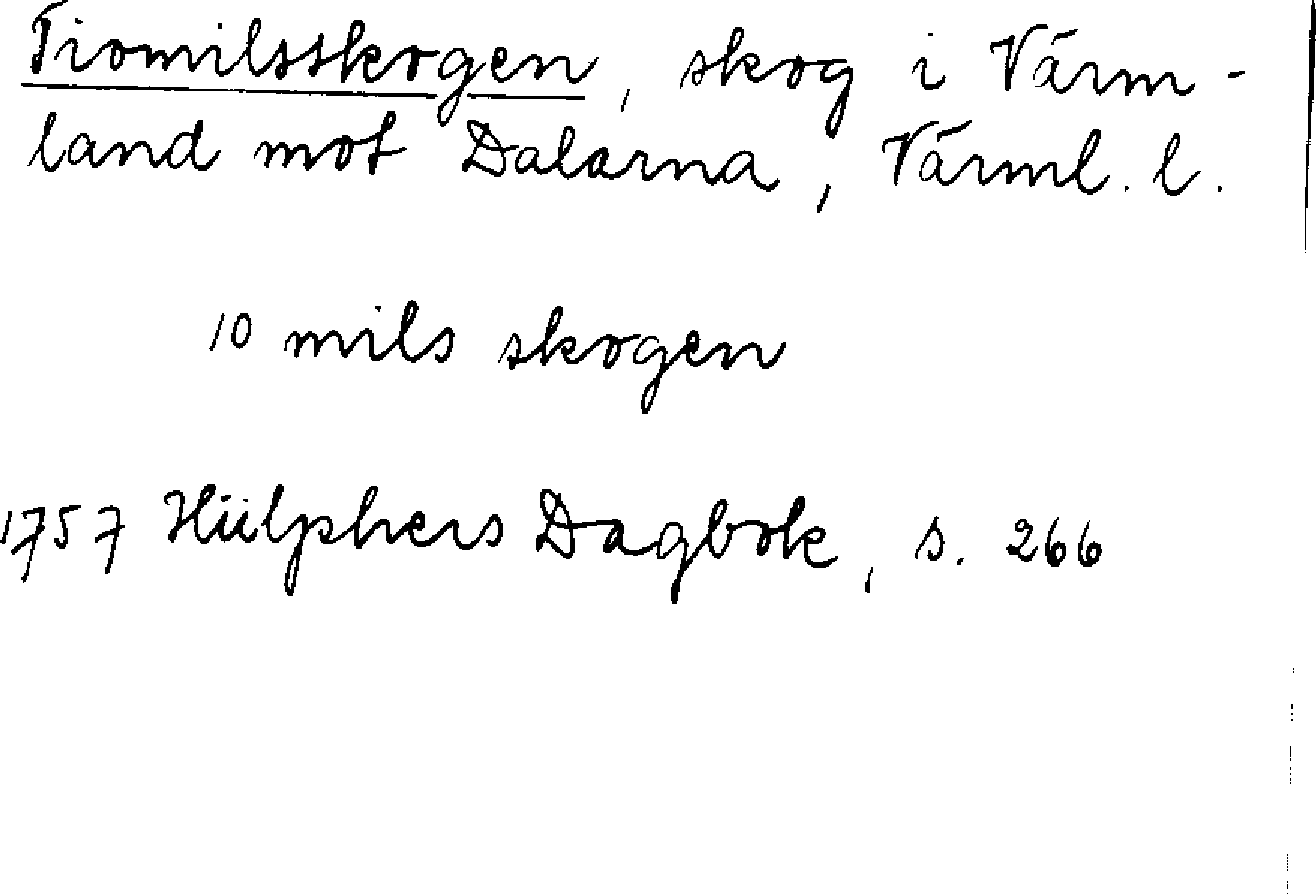 Tiomilsskogen, skog i Värm-
land mot Dalarna, Värml. l.
10 mils skogen
1757 Hülphers Dagbok, s. 266